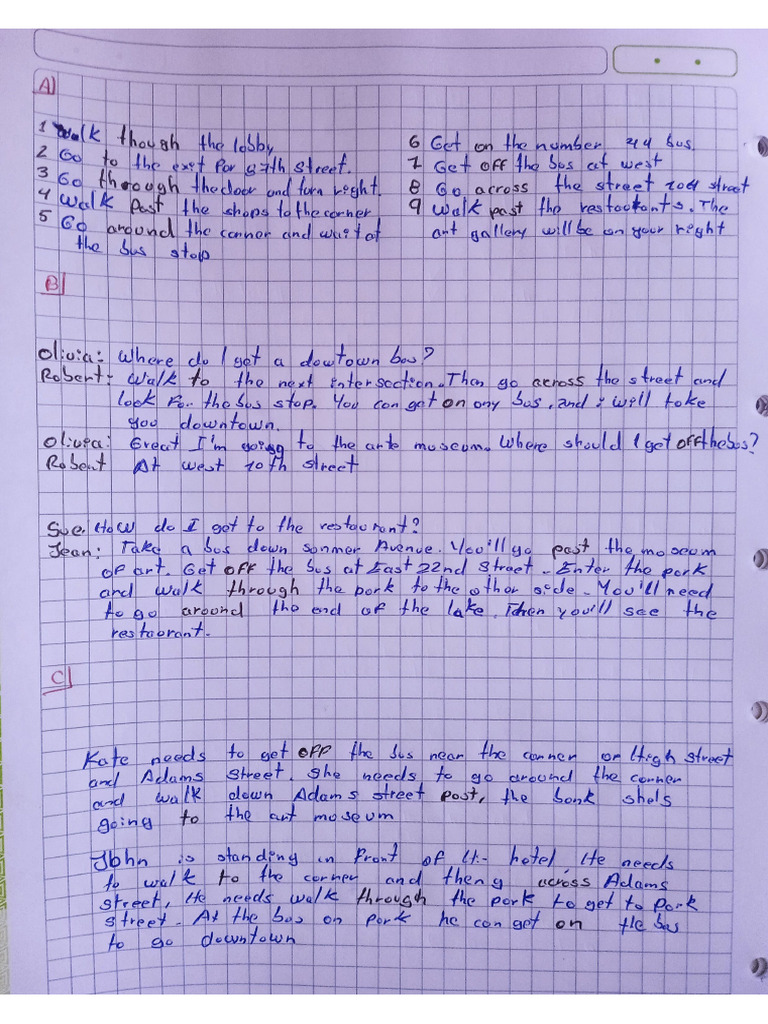 A)
1 Walk though the lobby
2 Go to the exit for 57th street.
3 Go through the door and turn right.
4 Walk past the shops to the corner
5 Go around the corner and wait at
the bus stop
6 Get on the number 44 bus.
7 Get off the bus at west
8 Go across the street 20th street
9 Walk past the restaurants. The
art gallery will be on your right
B)
Olivia: Where do I get a dowtown bus?
Robert: Walk to the next intersection. Then go across the street and
look for the bus stop. You can get on any bus, and i will take
you downtown.
Olivia: Great I'm going to the arts museum. Where should I get off the bus?
Robert At west 20th street
Sue. How do I get to the restaurant?
Jean: Take a bus down sonmer Avenue. You'll go past the museum
of art. Get off the bus at East 22nd Street. Enter the park
and walk through the park to the other side. You'll need
to go around the end of the lake. Then you'll see the
restaurant.
C)
Kate needs to get off the bus near the corner or High street
and Adams street. She needs to go around the corner
and walk down Adams street past, the bank shels
going to the art museum
John is standing in front of the hotel. He needs
to walk to the corner and then g across Adams
street, He needs walk through the park to get to Park
street. At the bus on park he can get on the bus
to go downtown